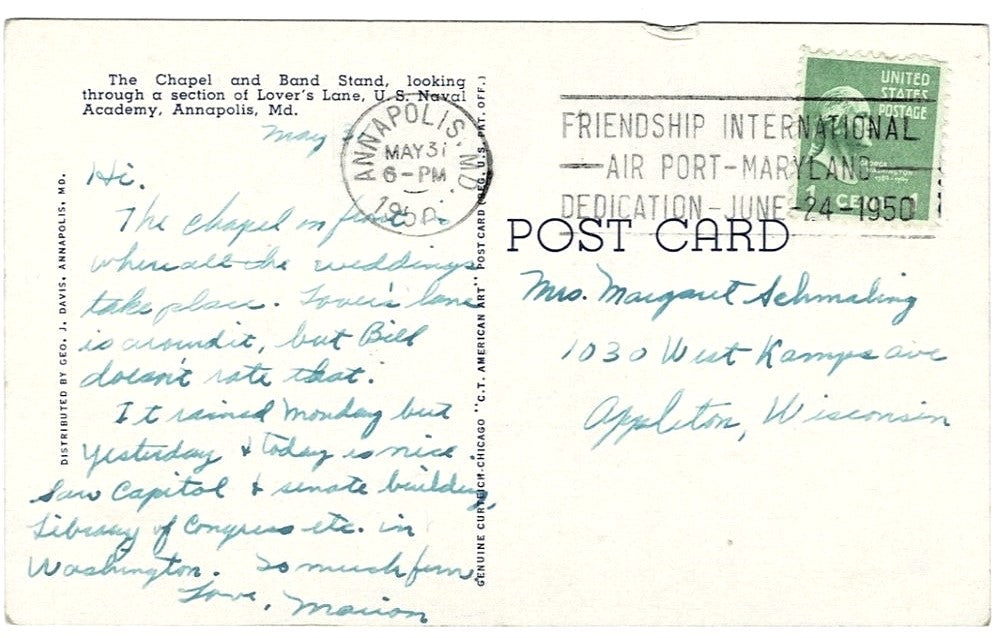 The Chapel and Band Stand, looking
through a section of Lover's Lane, U. S. Naval
Academy, Annapolis, Md.
May 3
Hi.
The chapel in front is
where all the weddings
take place. Lover's lane
is around it, but Bill
doesn't rate that.
It rained Monday but
Yesterday & today is nice.
Saw Capitol & senate building,
Library of Congress etc. in
Washington. So much fun.
Love, Marion
DISTRIBUTED BY GEO. J. DAVIS, ANNAPOLIS, MD.
GENUINE CURTEICH-CHICAGO "C.T. AMERICAN ART" POST CARD (REG. U.S. PAT. OFF.)
ANNAPOLIS, MD.
MAY 31
6-PM
1950
FRIENDSHIP INTERNATIONAL
AIR PORT-MARYLAND
DEDICATION-JUNE-24-1950
UNITED
STATES
POSTAGE
1 CENT 1
POST CARD
Mrs. Margaret Schmaling
1030 West Kamps Ave
Appleton, Wisconsin